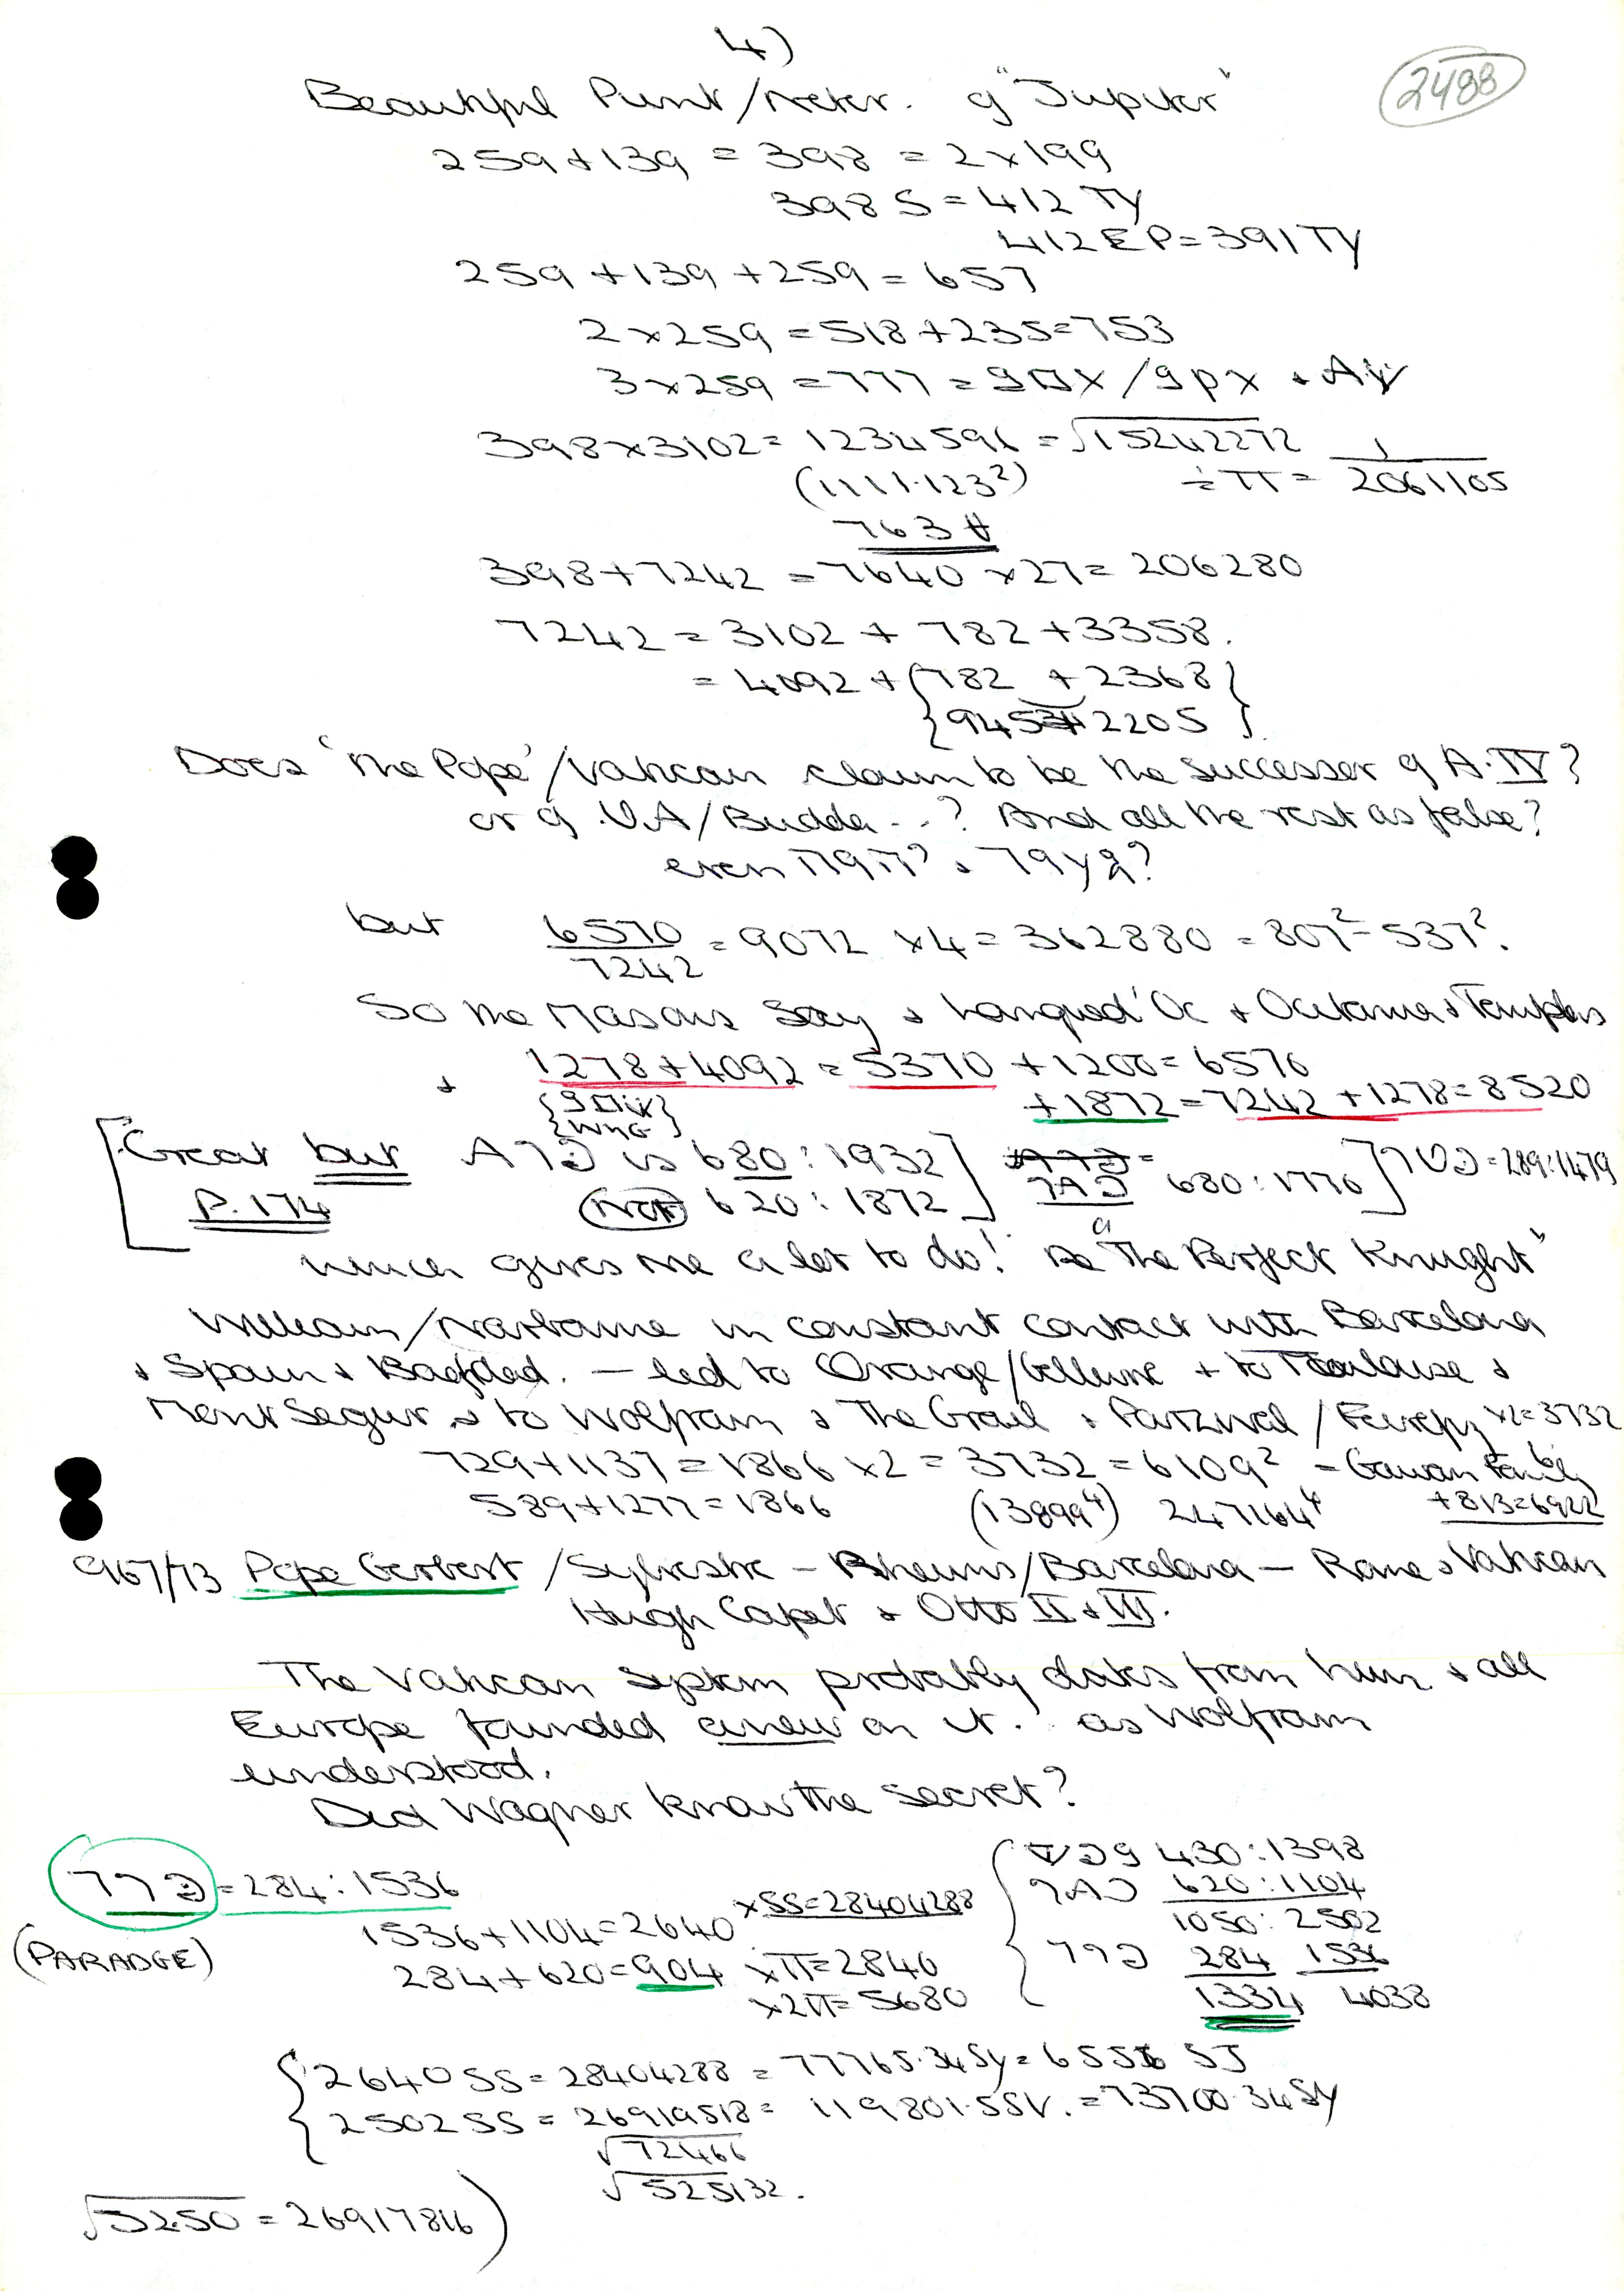 4)
2488
Beautiful Punt/Neter. of "Jupiter"
259 + 139 = 398 = 2 x 199
398 S = 412 TY
412 EP = 391 TY
259 + 139 + 259 = 657
2 x 259 = 518 + 235 = 753
3 x 259 = 777 =
398 x 3102 = 1234596 = √15242272
(1111.123²) ÷ π = 1/2061105
763
398 + 7242 = 7640 x 27 = 206280
7242 = 3102 + 782 + 3358.
= 4092 + {782 + 2368}
{945 2205}
Does 'The Pope'/Vatican claim to be the successor of A.IV?
or of V.A/Budda--? And all the rest as false?
even
but 6570/7242 = 9072 x 4 = 362880 = 807² - 537².
So the Masons say + Langued'Oc + Occitanie + Templars
+ 1278 + 4092 = 5370 + 1200 = 6570
+1872 = 7242 + 1278 = 8520
[Great but is 680 : 1932] 680 : 1776] = 289 : 1479
P. 174 (Not) 620 : 1872
which gives me a lot to do! "The Perfect Knight"
William/Narbonne in constant contact with Barcelona
+ Spain + Baghdad. — led to Orange/Gellone + to Toulouse +
Mont Segur + to Wolfram + The Grail + Parzival / x2 = 3732
729 + 1137 = 1866 x 2 = 3732 = 6109² = Gawan Family
589 + 1277 = 1866 (13899⁴) 247164⁴ + 813 = 6922
967/73 Pope Gerbert / Sylvestre - Rheims/Barcelona - Rome + Vatican
Hugh Capet + Otto II + III.
The Vatican system probably dates from him + all
Europe founded anew on it. as Wolfram
understood.
Did Wagner know the secret?
= 284 : 1536
(PARADGE)
1536 + 1104 = 2640 x SS = 28404288
284 + 620 = 904 x π = 2840
x 2π = 5680
430 : 1398
620 : 1104
1050 : 2502
284 1536
1334 4038
{2640 SS = 28404288 = 77765.34 SY = 6556 SJ
{2502 SS = 26919518 = 119801.5 SV. = 73700.34 SY
√72466
√525132.
√5250 = 26917816)